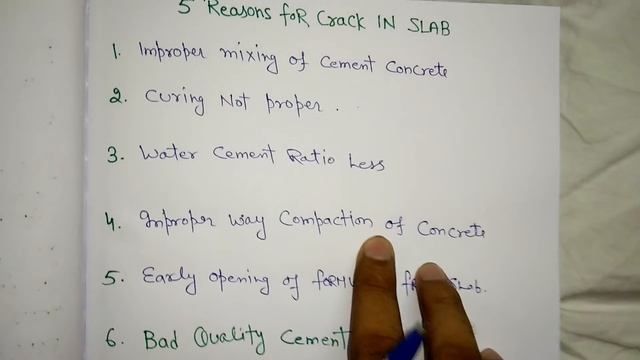 5 Reasons for Crack IN SLAB
1. Improper mixing of Cement Concrete
2. Curing Not proper.
3. Water Cement Ratio Less
4. Improper way Compaction of Concrete
5. Early opening of
6. Bad Quality Cement